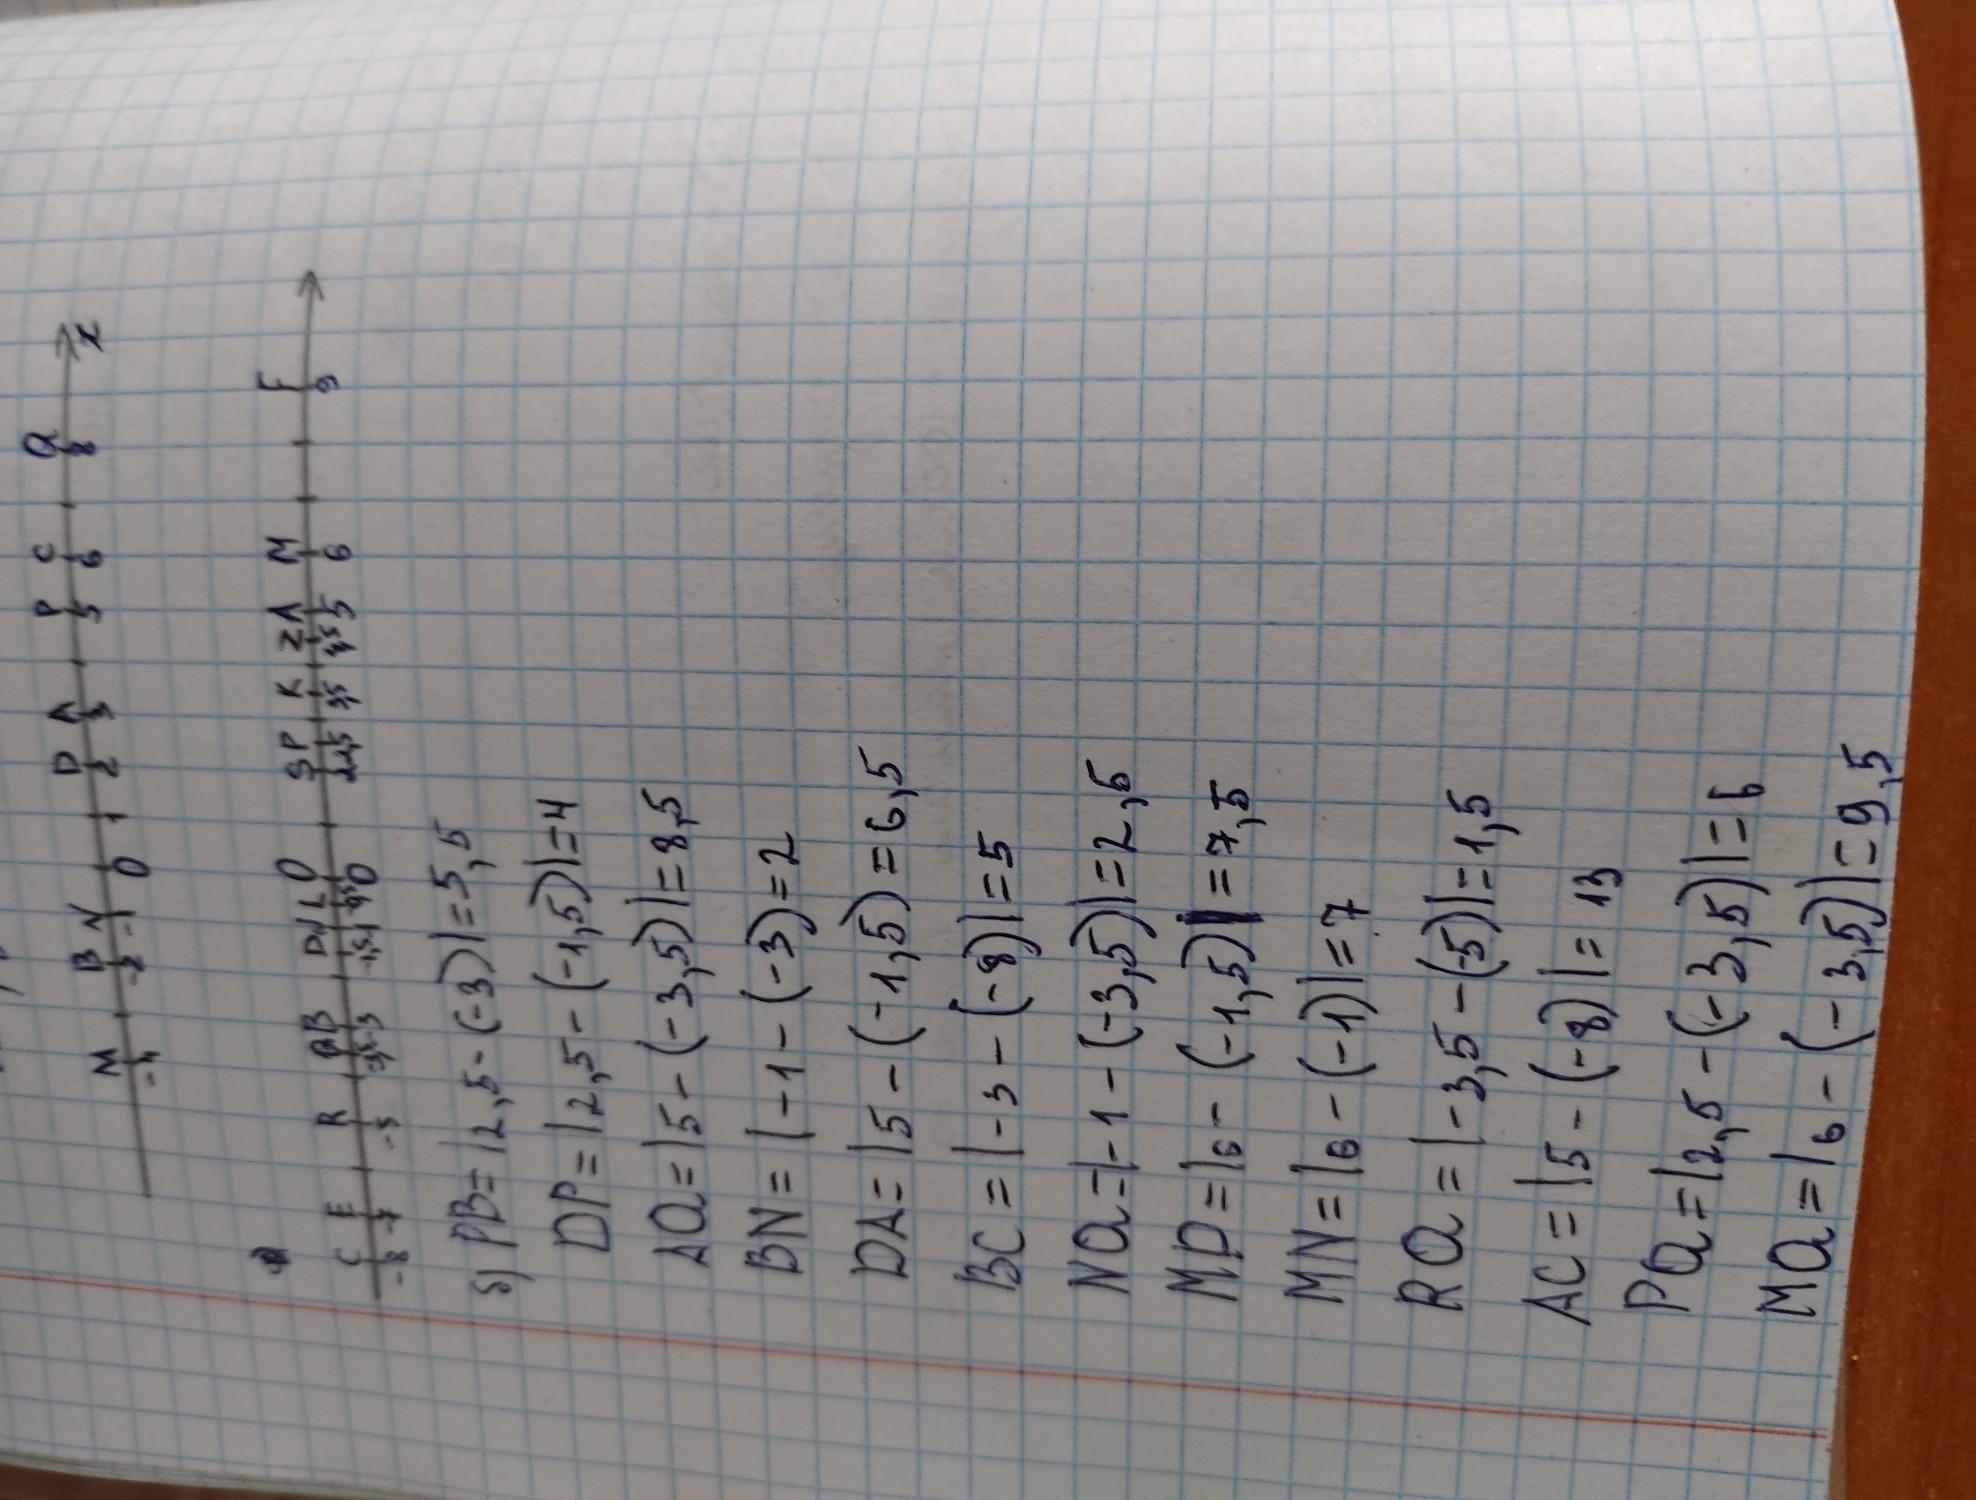 M B N D A P C Q
-4 -2 -1 0 1 2 3 5 6 8 x
C E R Q B D N L O S P K Z A M F
-8 -7 -5 -3,5 -3 -1,5 -1 0 2 2,5 3,5 4,5 5 6 9
б) PB=|2,5-(-3)|=5,5
DP=|2,5-(-1,5)|=4
AQ=|5-(-3,5)|=8,5
BN=|-1-(-3)=2
DA=|5-(-1,5)=6,5
BC=|-3-(-8)|=5
NQ=|-1-(-3,5)|=2,5
MD=|6-(-1,5)|=7,5
MN=|6-(-1)|=7
RQ=|-3,5-(-5)|=1,5
AC=|5-(-8)|=13
PQ=|2,5-(-3,5)|=6
MQ=|6-(-3,5)|=9,5